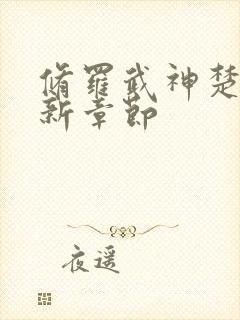 脩羅武神楚
新章節
夜遥